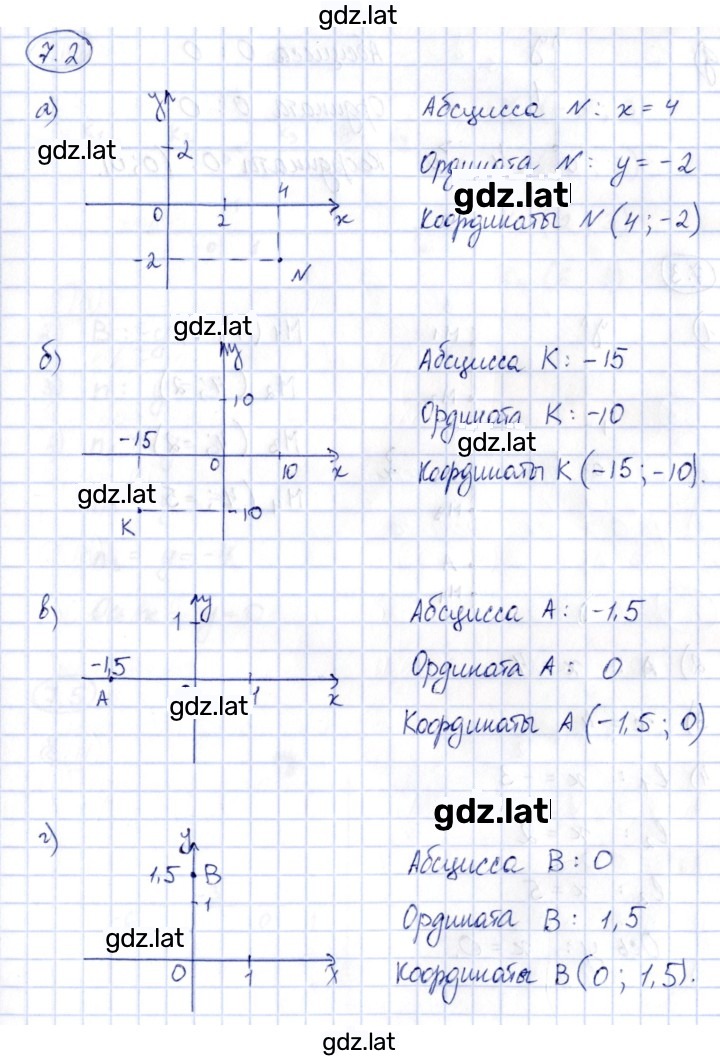 gdz.lat
7.2
а)
y
2
0
2
4
x
-2
N
Абсцисса N: x = 4
Ордината N: y = -2
Координаты N (4; -2)
gdz.lat
gdz.lat
gdz.lat
б)
y
10
-15
0
10
x
K
-10
Абсцисса K: -15
Ордината K: -10
Координаты K (-15; -10).
gdz.lat
gdz.lat
в)
y
1
-1,5
A
1
x
Абсцисса A: -1,5
Ордината A: 0
Координаты A (-1,5; 0)
gdz.lat
gdz.lat
г)
y
1,5
B
1
0
1
x
Абсцисса B: 0
Ордината B: 1,5
Координаты B (0; 1,5).
gdz.lat
gdz.lat